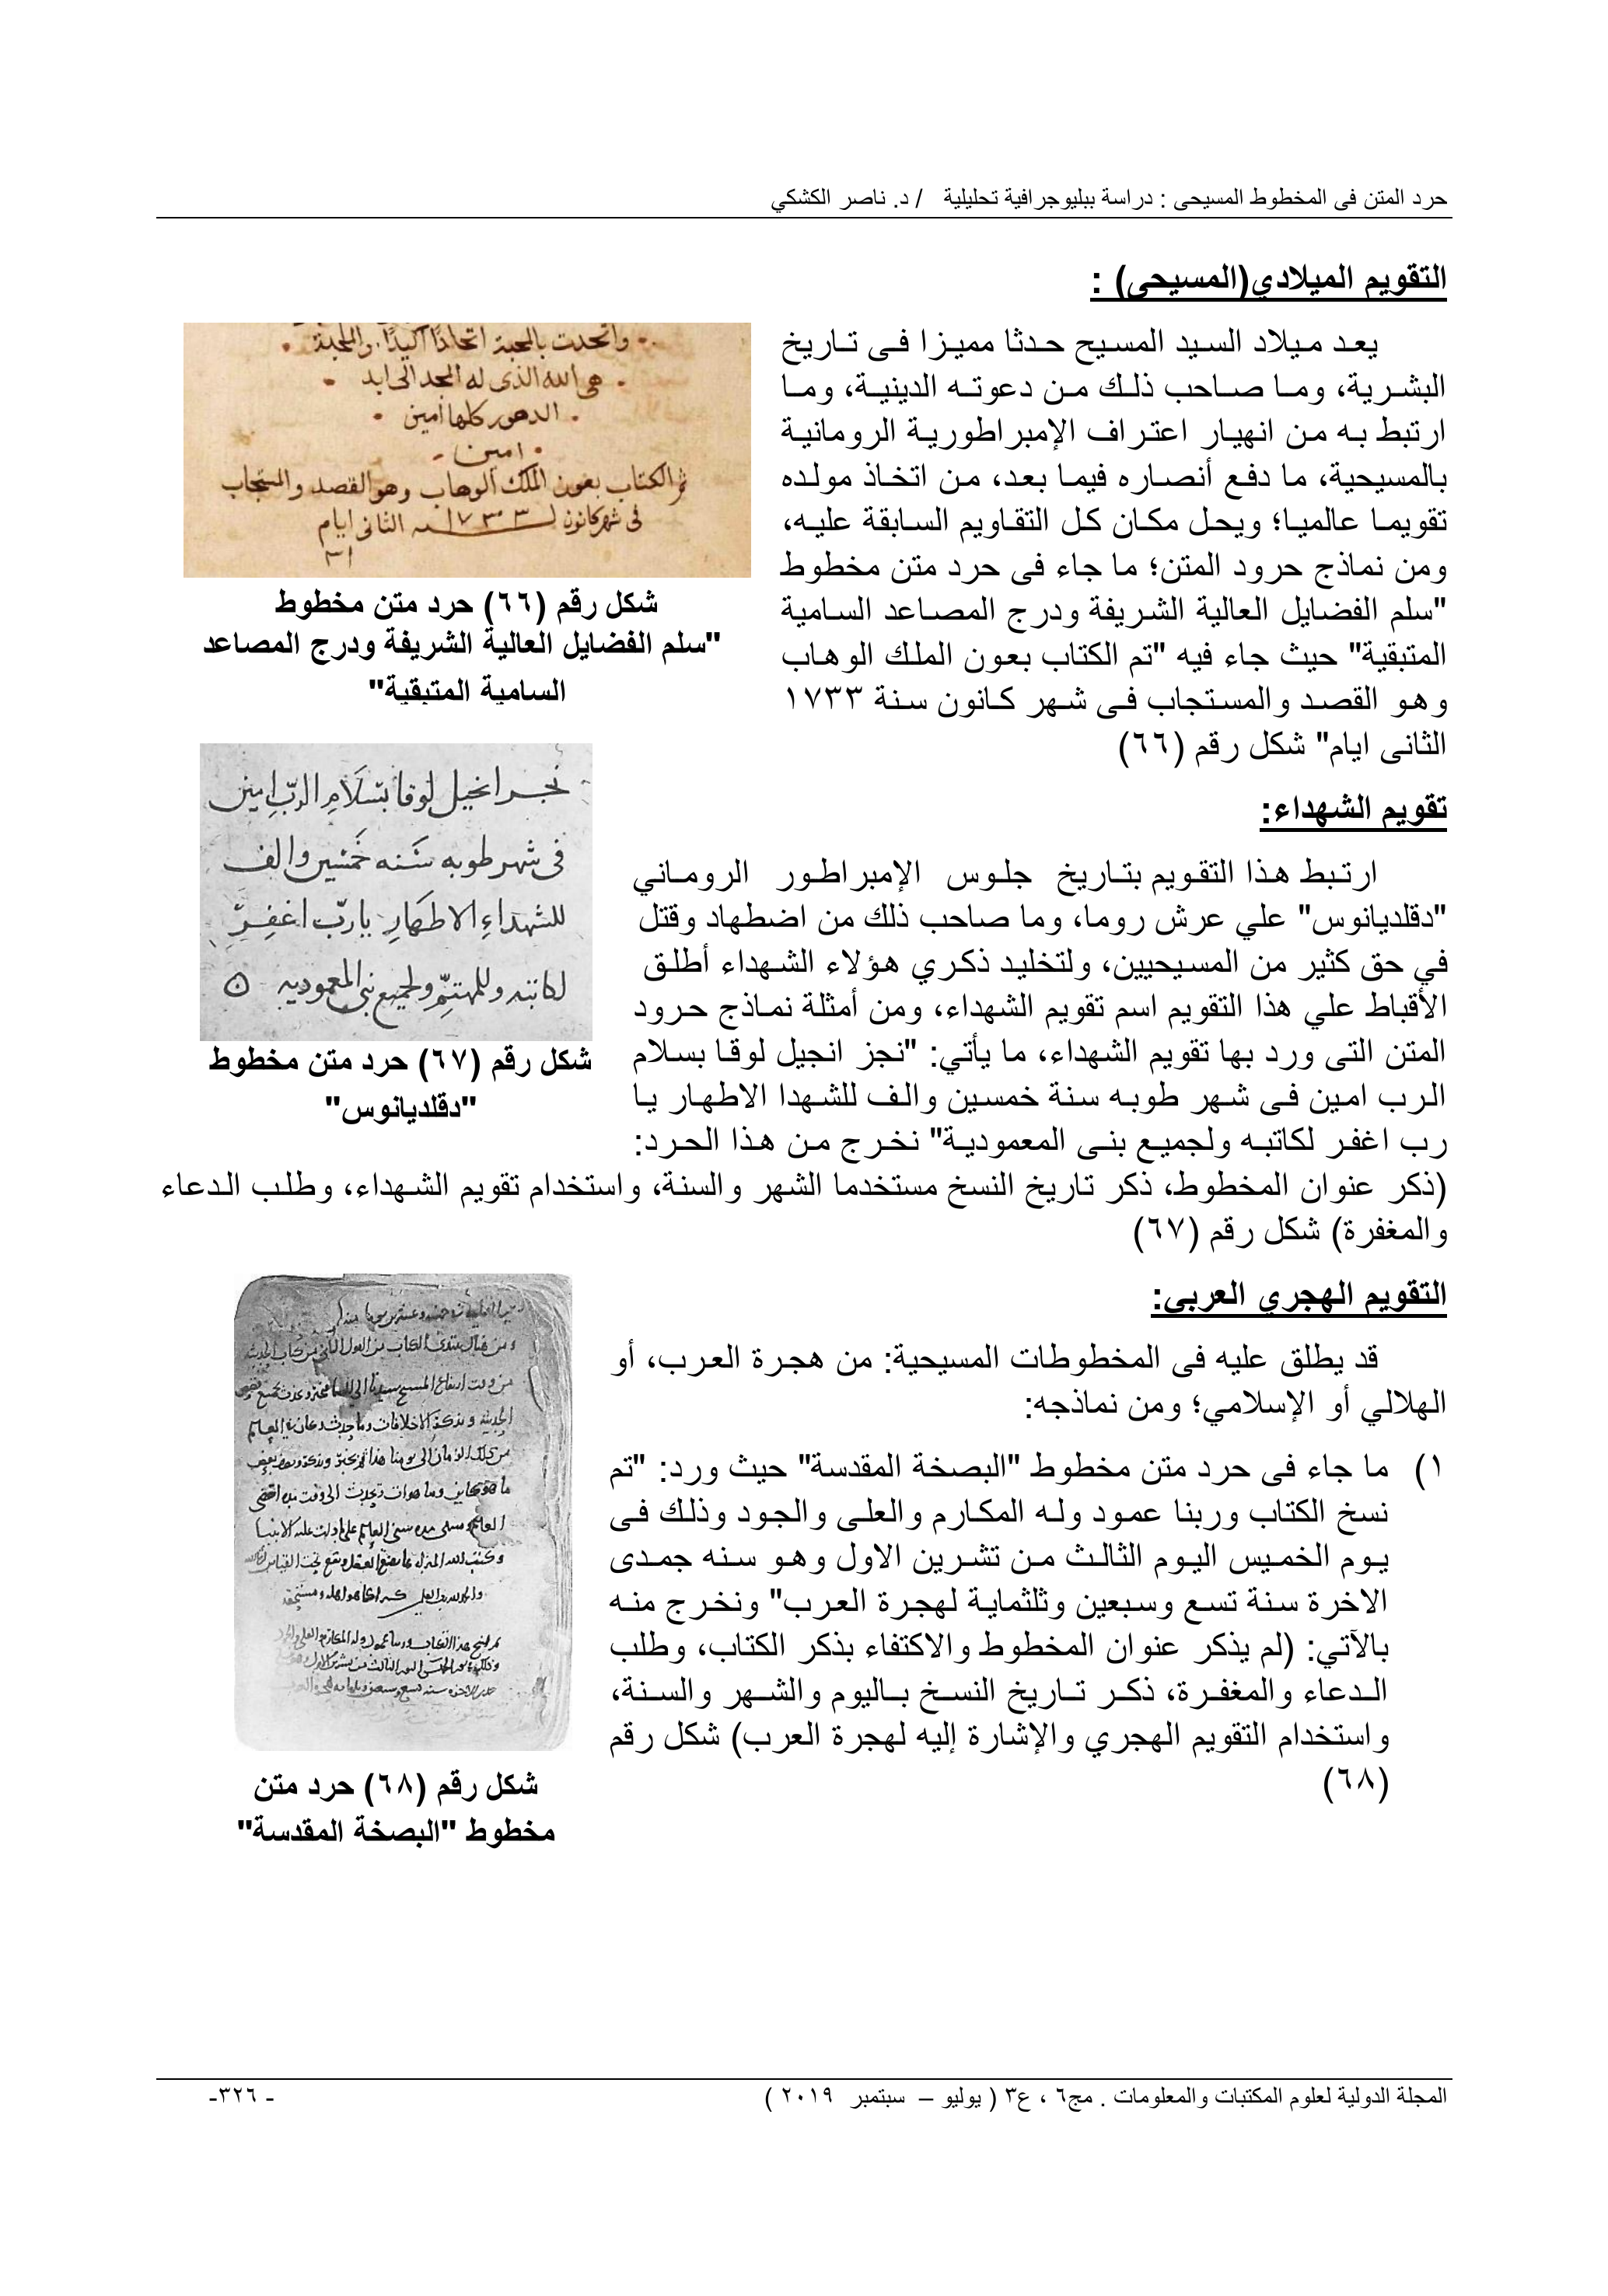 حرد المتن فى المخطوط المسيحى : دراسة ببليوجرافية تحليلية / د. ناصر الكشكي
التقويم الميلادي(المسيحى) :
يعد ميلاد السيد المسيح حدثا مميزا فى تاريخ
البشرية، وما صاحب ذلك من دعوته الدينية، وما
ارتبط به من انهيار اعتراف الإمبراطورية الرومانية
بالمسيحية، ما دفع أنصاره فيما بعد، من اتخاذ مولده
تقويما عالميا؛ ويحل مكان كل التقاويم السابقة عليه،
ومن نماذج حرود المتن؛ ما جاء فى حرد متن مخطوط
"سلم الفضايل العالية الشريفة ودرج المصاعد السامية
المتبقية" حيث جاء فيه "تم الكتاب بعون الملك الوهاب
وهو القصد والمستجاب فى شهر كانون سنة ١٧٣٣
الثانى ايام" شكل رقم (٦٦)
واتحدت بالمحبة اتحادًا اكيدًا. والمحبة
هى الله الذى له المجد الى ابد
الدهور كلها امين
امين
تم الكتاب بعون الملك الوهاب وهو القصد والمستجاب
فى شهر كانون ١٧٣٣ الثانى ايام
٣١
شكل رقم (٦٦) حرد متن مخطوط
"سلم الفضايل العالية الشريفة ودرج المصاعد
السامية المتبقية"
تقويم الشهداء:
ارتبط هذا التقويم بتاريخ جلوس الإمبراطور الروماني
"دقلديانوس" علي عرش روما، وما صاحب ذلك من اضطهاد وقتل
في حق كثير من المسيحيين، ولتخليد ذكري هؤلاء الشهداء أطلق
الأقباط علي هذا التقويم اسم تقويم الشهداء، ومن أمثلة نماذج حرود
المتن التى ورد بها تقويم الشهداء، ما يأتي: "نجز انجيل لوقا بسلام
الرب امين فى شهر طوبه سنة خمسين والف للشهدا الاطهار يا
رب اغفر لكاتبه ولجميع بنى المعمودية" نخرج من هذا الحرد:
(ذكر عنوان المخطوط، ذكر تاريخ النسخ مستخدما الشهر والسنة، واستخدام تقويم الشهداء، وطلب الدعاء
والمغفرة) شكل رقم (٦٧)
نجز انجيل لوقا بسَلَامِ الربّ امين
فى شهر طوبه سَنه خمسين والف
للشهداءِ الاطهَارِ يارَبّ اغفِر
لكاتبه وللمهتمّ ولجميع بنى المعموديه
شكل رقم (٦٧) حرد متن مخطوط
"دقلديانوس"
التقويم الهجري العربى:
قد يطلق عليه فى المخطوطات المسيحية: من هجرة العرب، أو
الهلالي أو الإسلامي؛ ومن نماذجه:
١) ما جاء فى حرد متن مخطوط "البصخة المقدسة" حيث ورد: "تم
نسخ الكتاب وربنا عمود وله المكارم والعلى والجود وذلك فى
يوم الخميس اليوم الثالث من تشرين الاول وهو سنه جمدى
الاخرة سنة تسع وسبعين وثلثماية لهجرة العرب" ونخرج منه
بالآتي: (لم يذكر عنوان المخطوط والاكتفاء بذكر الكتاب، وطلب
الدعاء والمغفرة، ذكر تاريخ النسخ باليوم والشهر والسنة،
واستخدام التقويم الهجري والإشارة إليه لهجرة العرب) شكل رقم
(٦٨)
شكل رقم (٦٨) حرد متن
مخطوط "البصخة المقدسة"
المجلة الدولية لعلوم المكتبات والمعلومات . مج٦ ، ع٣ ( يوليو – سبتمبر ٢٠١٩ )
- ٣٢٦-